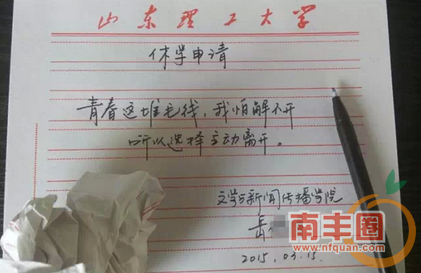 山东理工大学
休学申请
青春这堆毛线，我怕解不开
所以选择主动离开。
文学与新闻传播学院
岳
2015.03.15.
南丰圈
www.nfquan.com